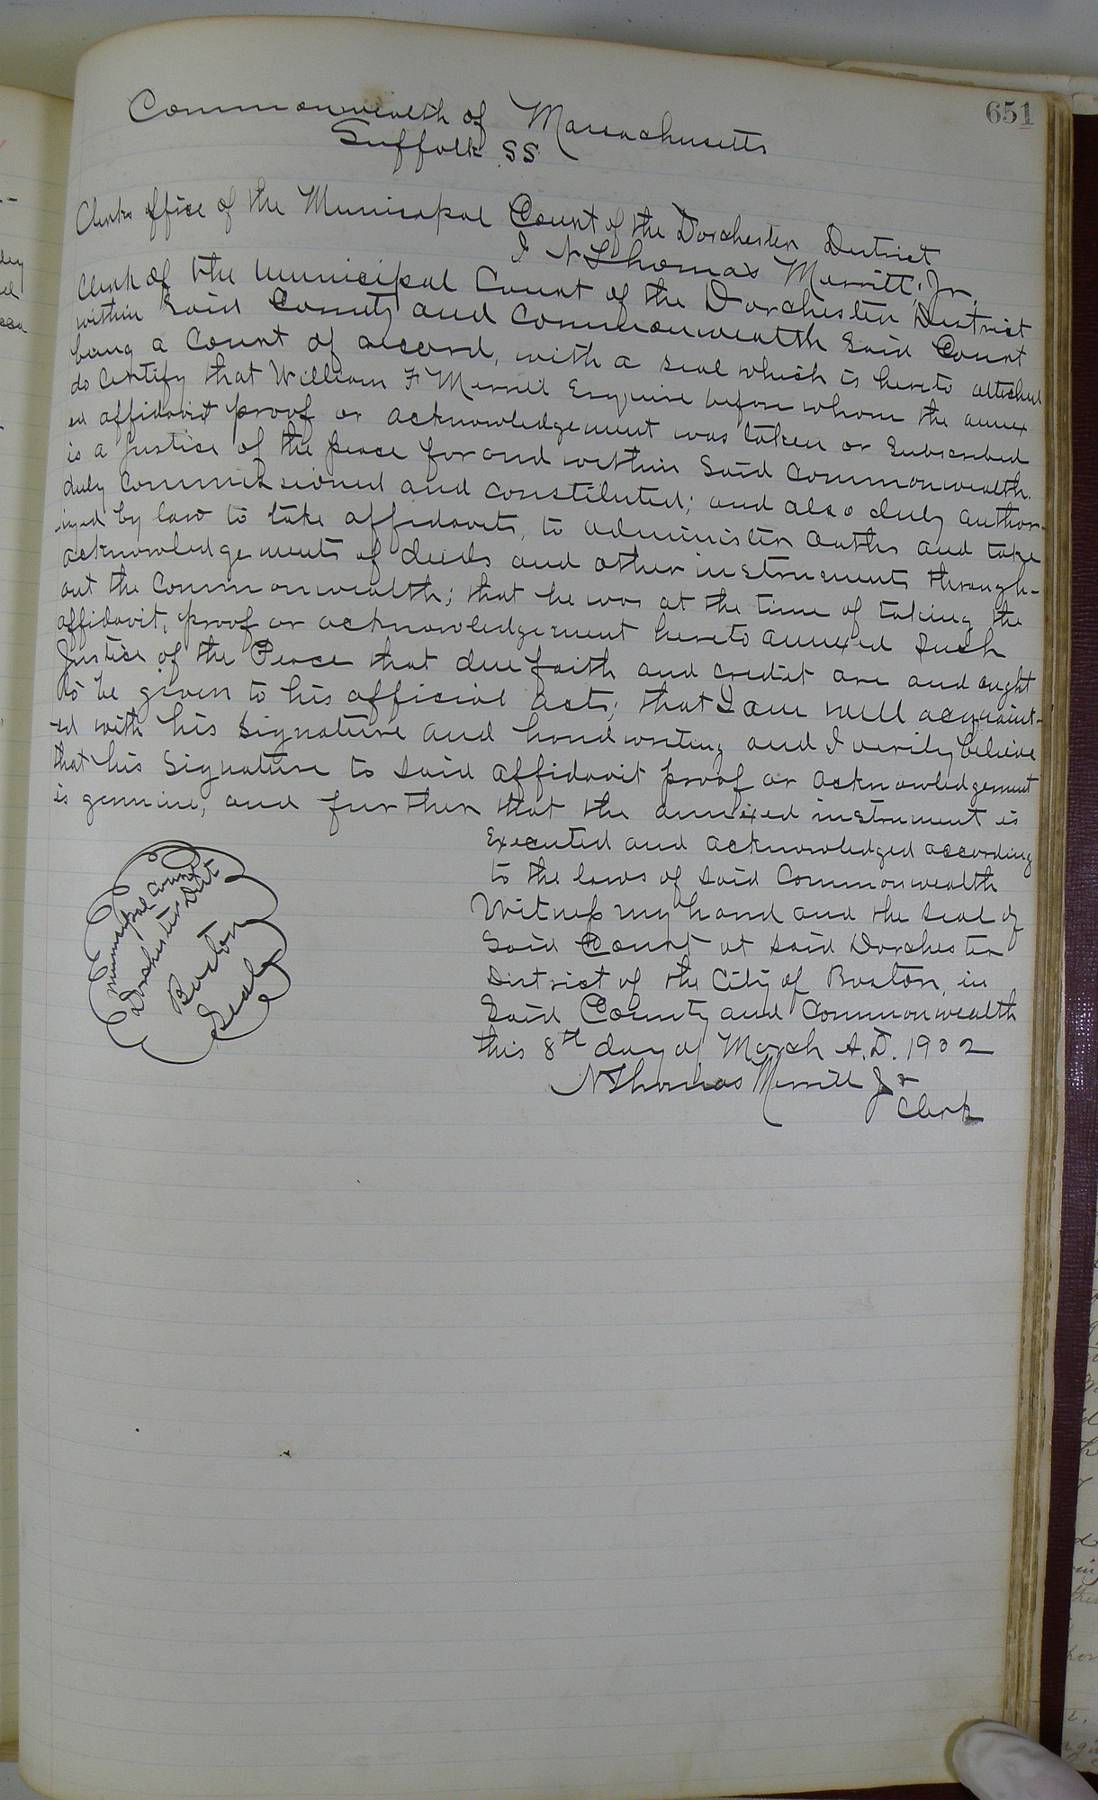 651
Commonwealth of Massachusetts
Suffolk SS
Clerks office of the Municipal Court of the Dorchester District
I N Thomas Merritt Jr.
Clerk of the Municipal Court of the Dorchester District
within said County and Commonwealth said Court
being a Court of record, with a seal which is hereto attached
do certify that William F Merrill Esquire before whom the annex
ed affidavit proof or acknowledgement was taken or subscribed
is a Justice of the peace for and within said Commonwealth
duly commissioned and constituted; and also duly author-
ized by law to take affidavits, to administer oaths and take
acknowledgements of deeds and other instruments through-
out the Commonwealth; that he was at the time of taking the
affidavit, proof or acknowledgement hereto annexed such
Justice of the Peace that due faith and credit are and ought
to be given to his official acts; that I am well acquaint-
ed with his signature and handwriting and I verily believe
that his signature to said affidavit proof or acknowledgement
is genuine; and further that the annexed instrument is
executed and acknowledged according
to the laws of said Commonwealth
Witness my hand and the seal of
said Court at said Dorchester
District of the City of Boston, in
said County and Commonwealth
this 8th day of March A.D. 1902
N Thomas Merritt Jr
Clerk
Municipal Court
Dorchester Dist
Boston
Seal